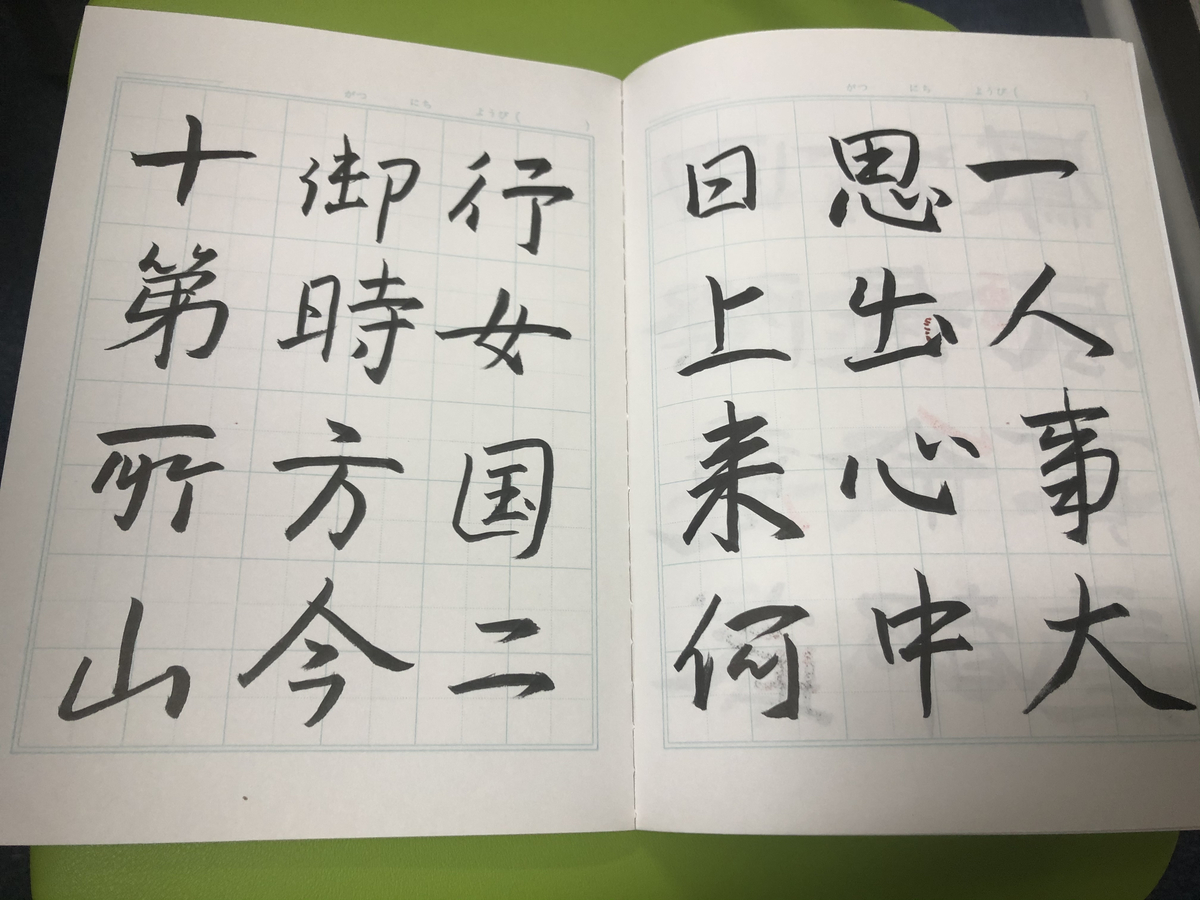 がつ にち ようび( )
一人事大
思出心中
日上来何
がつ にち ようび( )
行女国二
御時方今
十第所山